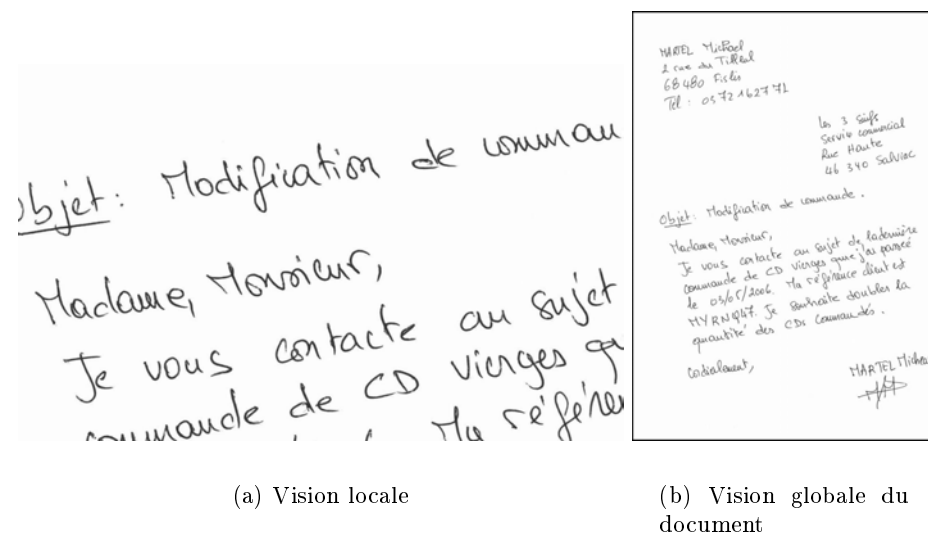 Objet: Modification de comman
Madame, Monsieur,
Je vous contacte au sujet
commande de CD vierges qu
Ma référen
(a) Vision locale
MARTEL Michael
2 rue du Tilleul
68480 Fislis
Tél : 0372162771
Les 3 Suifs
Service commercial
Rue Haute
46 340 Salviac
Objet: Modification de commande.
Madame, Monsieur,
Je vous contacte au sujet de la dernière
commande de CD vierges que j'ai passé
le 03/05/2006. Ma référence client est
MYRNQ47. Je souhaite doubler la
quantité des CDs commandés.
Codialement,
MARTEL Michael
(b) Vision globale du
document